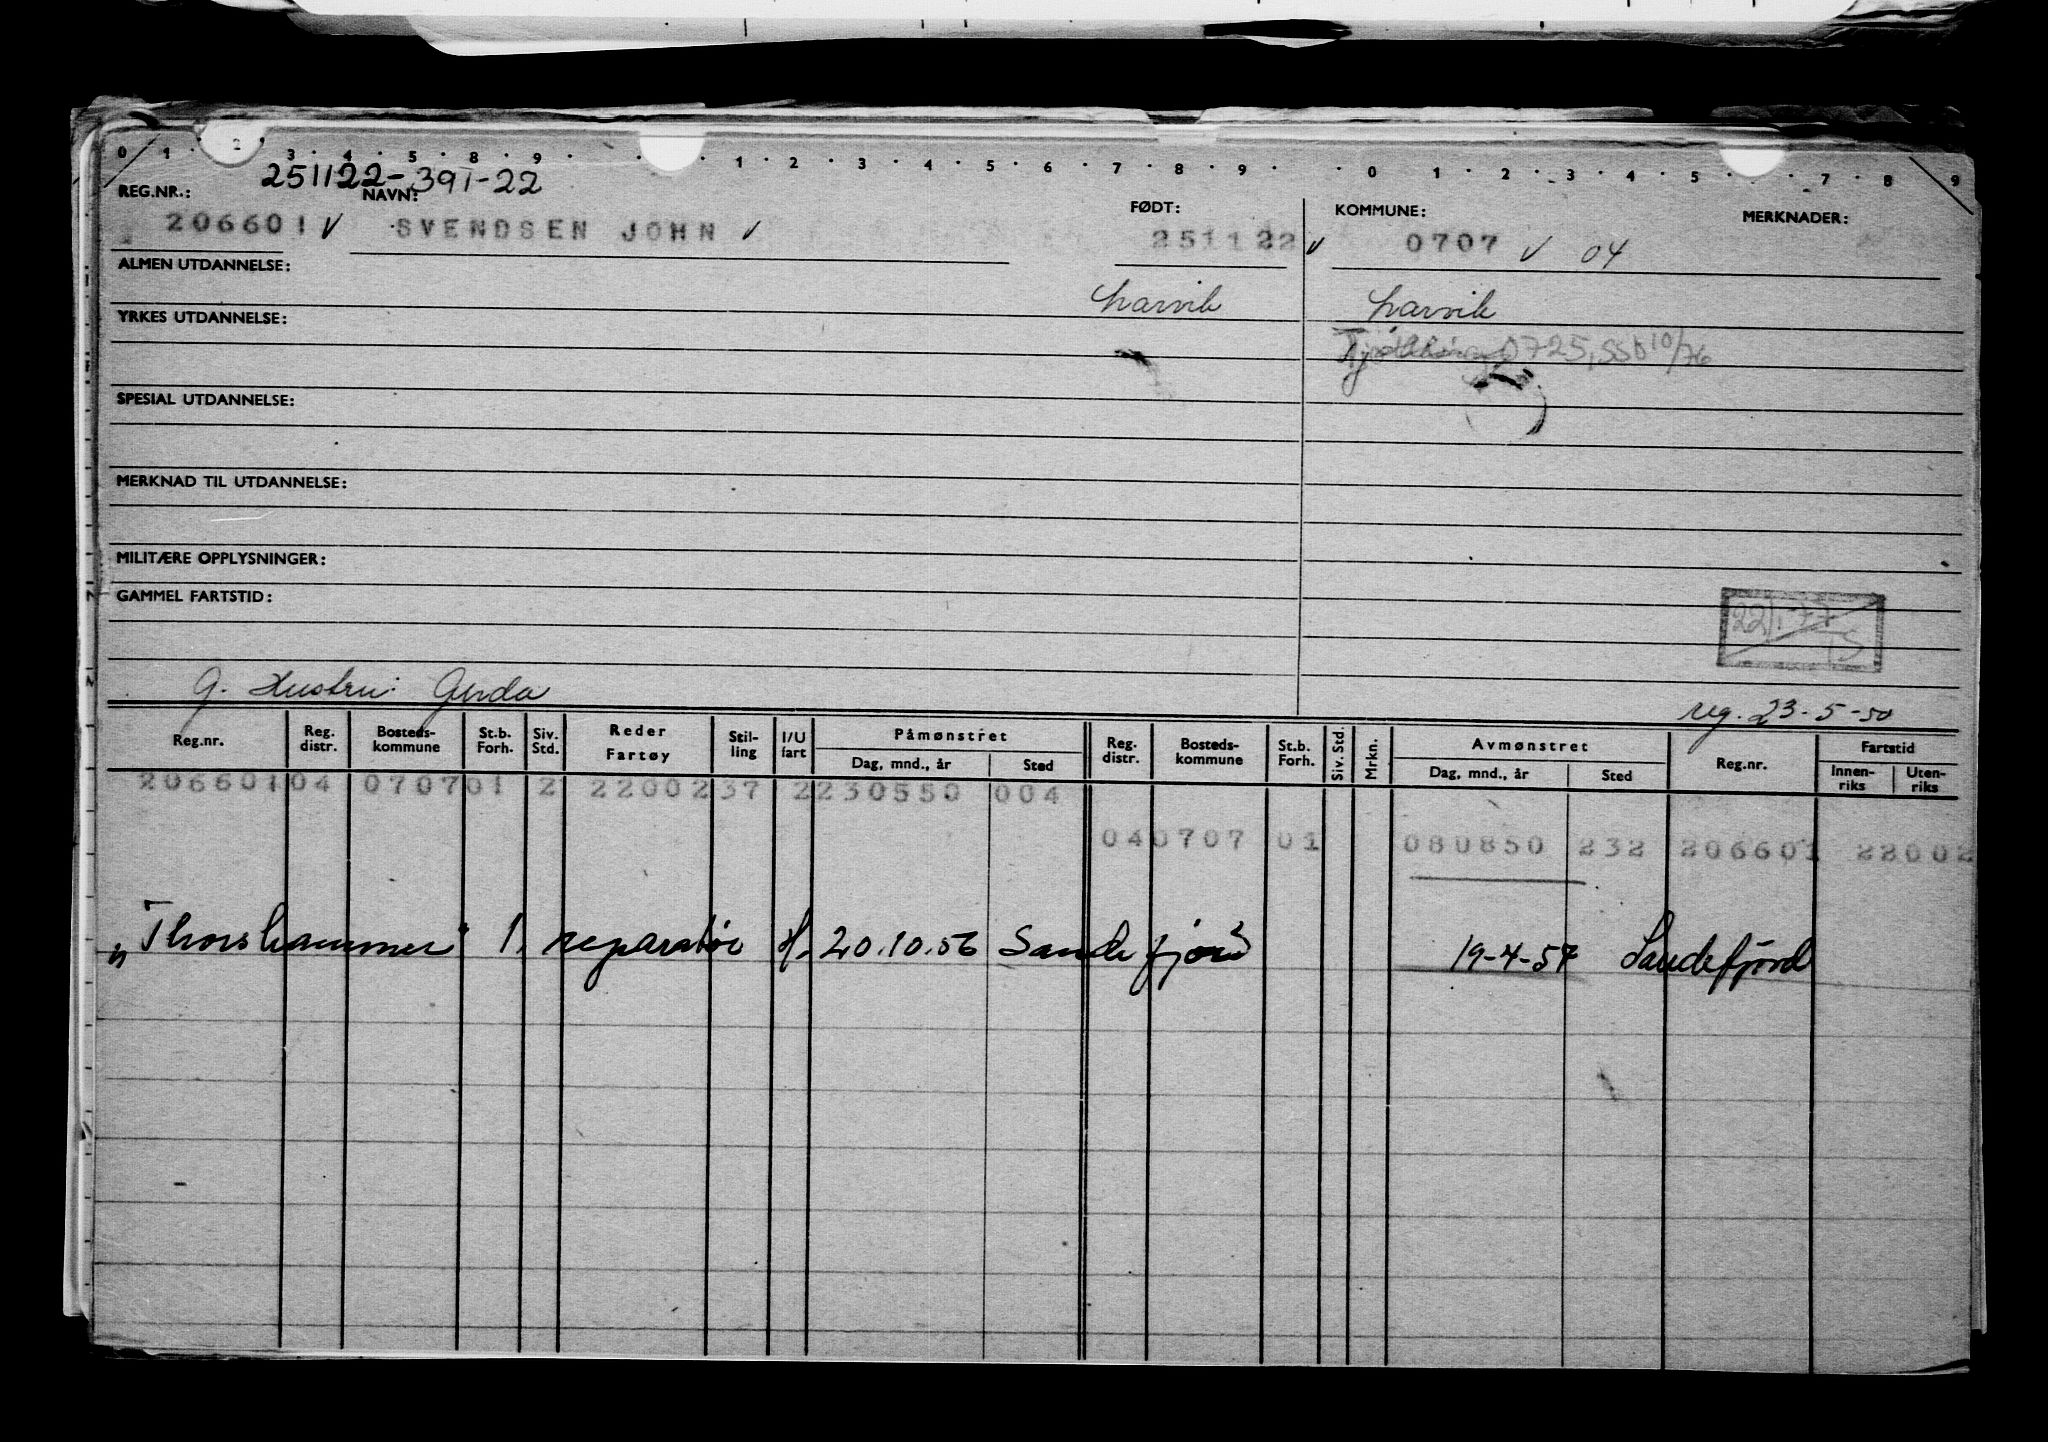 0 1 2 3 4 5 8 9 1 2 3 4 5 6 7 8 9 0 1 2 3 4 5 7 8 9
251122-391-22
REG.NR.: NAVN: FØDT: KOMMUNE: MERKNADER:
206601 V SVENDSEN JOHN V 251122 V 0707 V 04
ALMEN UTDANNELSE:
Larvik Larvik
YRKES UTDANNELSE:
0725, SSb 10/76
SPESIAL UTDANNELSE:
MERKNAD TIL UTDANNELSE:
MILITÆRE OPPLYSNINGER:
GAMMEL FARTSTID:
22/1-77 TS
G. Hustru: Gerda
reg. 23-5-50
Reg.nr. Reg. distr. Bosteds-kommune St.b. Forh. Siv. Std. Reder Fartøy Stil-ling I/U fart Påmønstret Dag, mnd., år Sted Reg. distr. Bosteds-kommune St.b. Forh. Siv. Std. Mrkn. Avmønstret Dag, mnd., år Sted Reg.nr. Fartstid Innen-riks Uten-riks
206601 04 0707 01 2 22002 37 2 230550 004
04 0707 01 080850 232 206601 22002
"Thorshammer" 1. reparatør H. 20.10.56 Sandefjord 19-4-57 Sandefjord